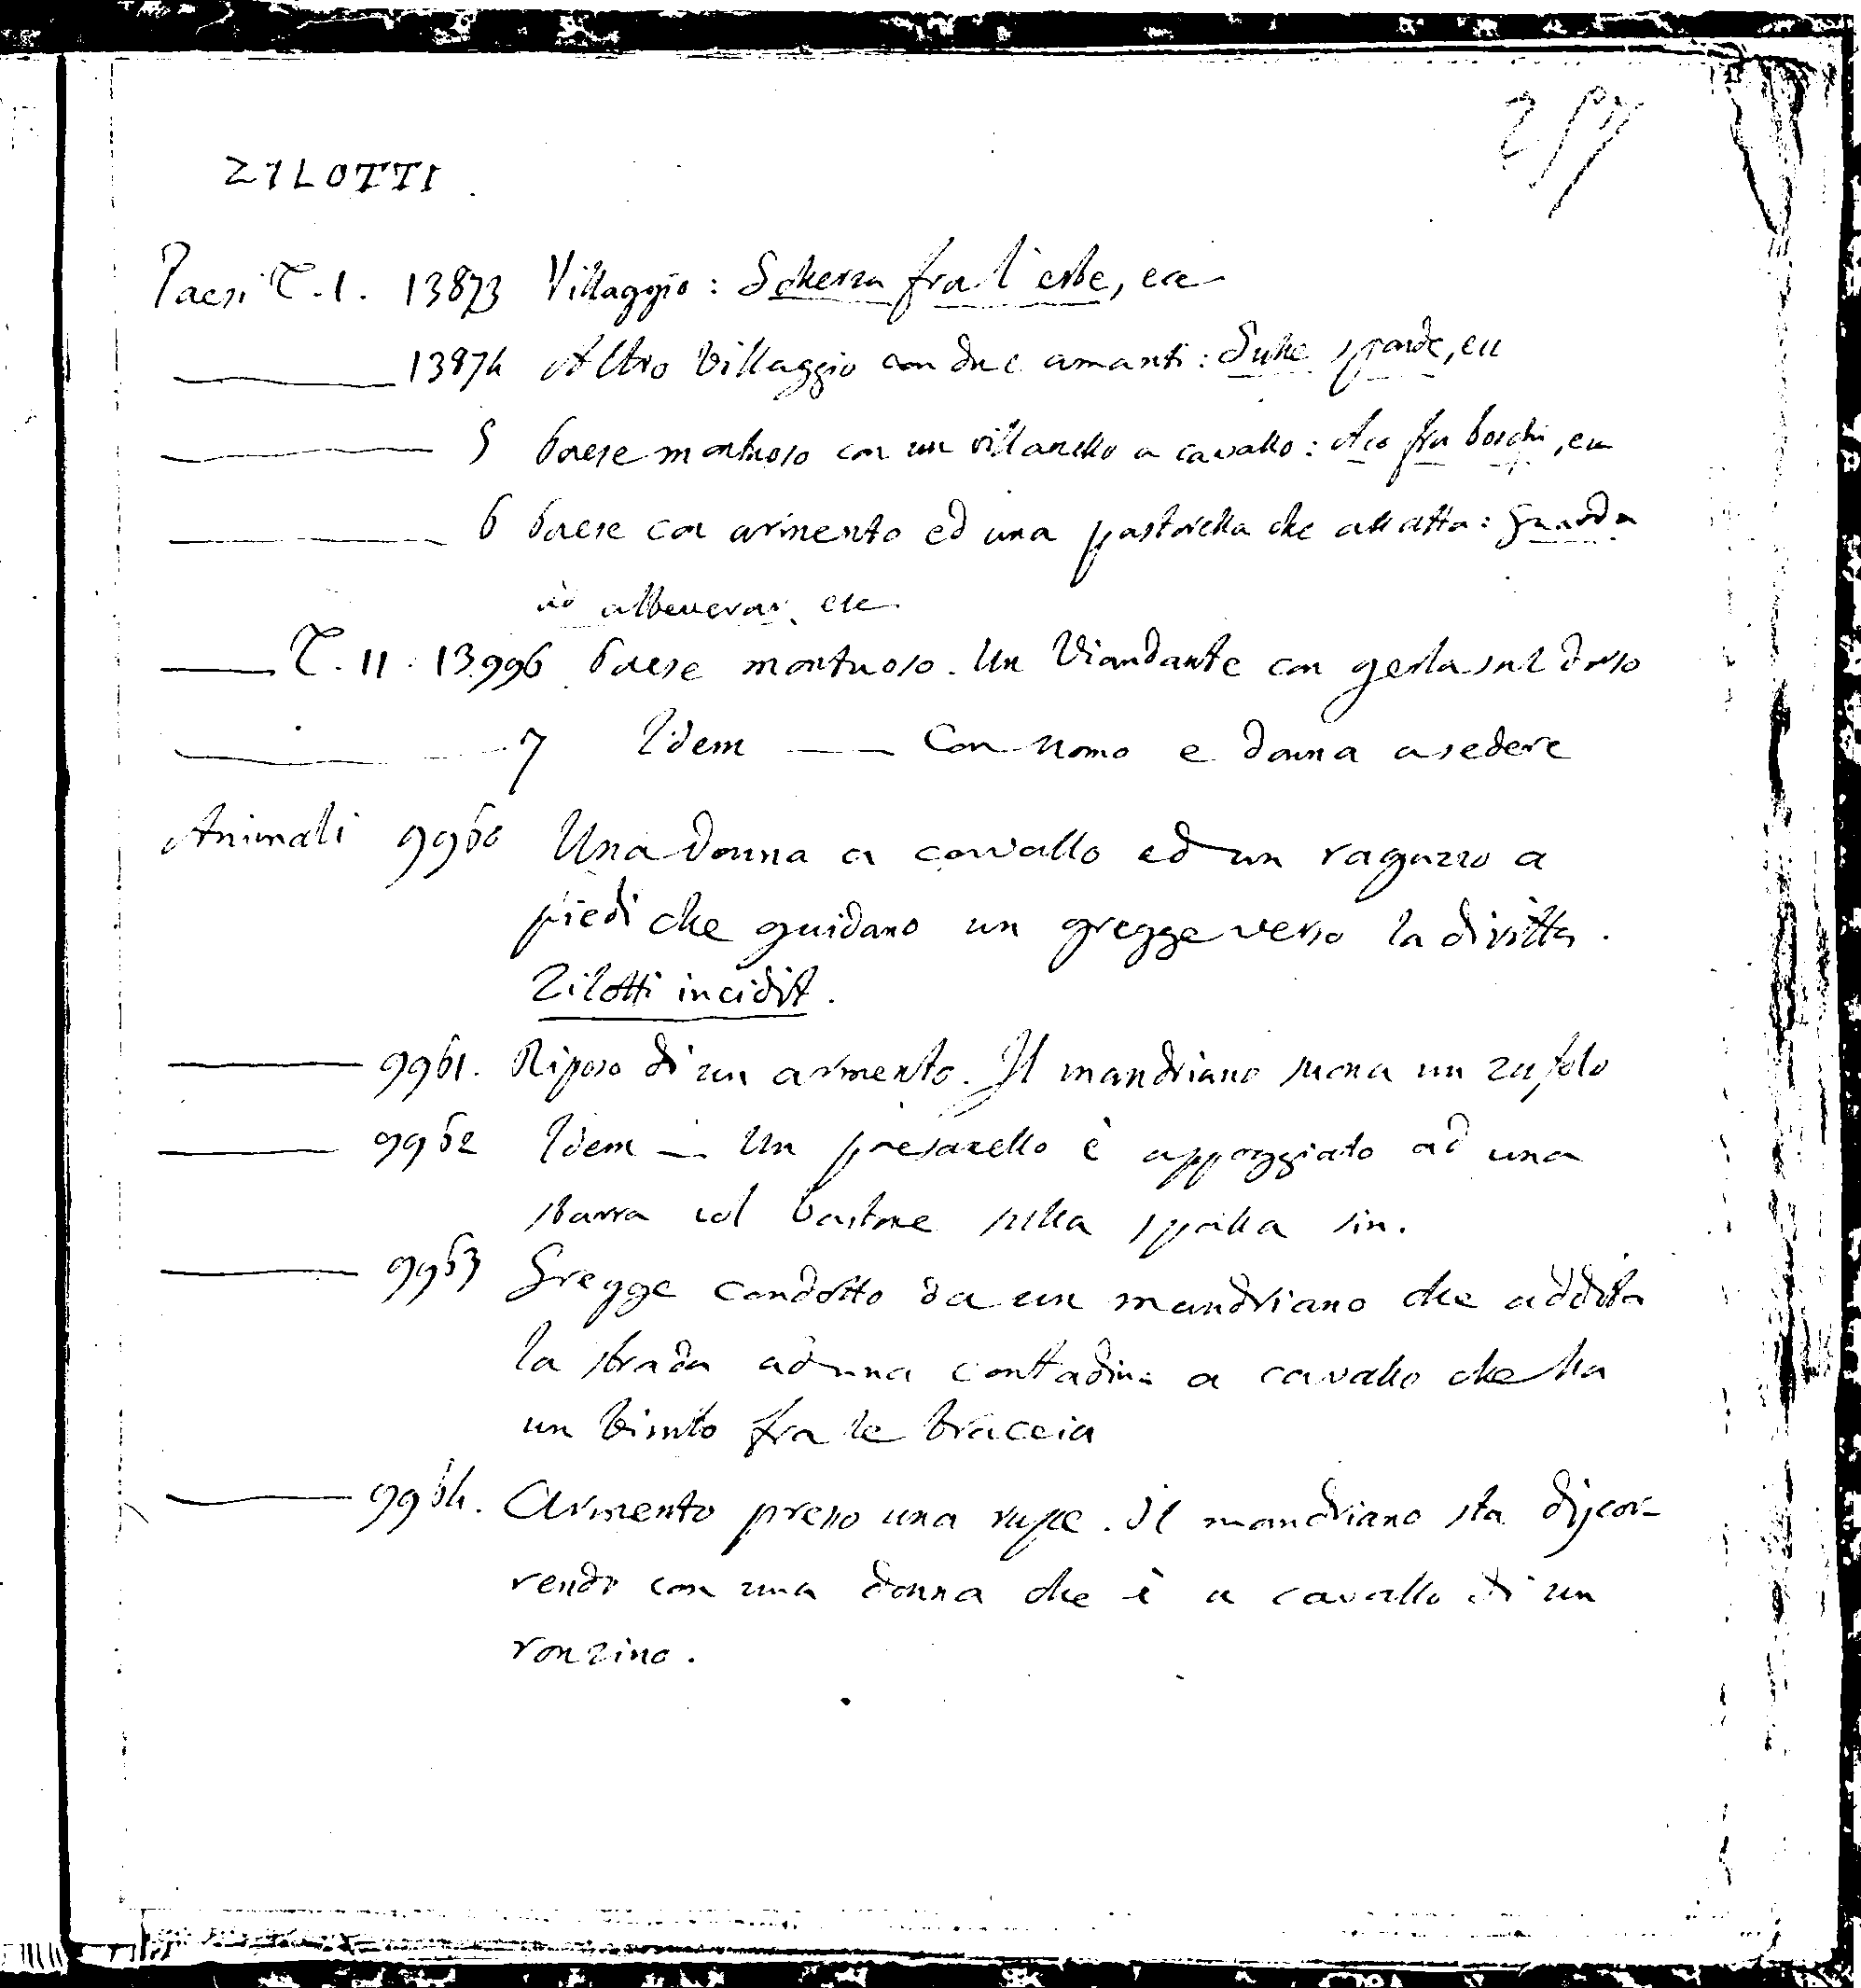 257
ZILOTTI.
Paesi T. I. 13873 Villaggio: Scherza fra l'erbe, ecc
13874 Altro Villaggio con due amanti: Sulle sponde, ecc
5 Paese montuoso con un villanello a cavallo: fra boschi, ecc
6 Paese con armento ed una pastorella che allatta: Guarda
ad abbeverar, ecc.
T. II. 13996 Paese montuoso. Un Viandante con gerla sul dorso
7 Idem — Con uomo e donna a sedere
Animali 9960 Una donna a cavallo ed un ragazzo a
piedi che guidano un gregge verso la diritta.
Zilotti incidit.
9961. Riposo di un armento. Il mandriano suona un zufolo
9962 Idem — Un paesanello è appoggiato ad una
sbarra col bastone sulla spalla sin.
9963 Gregge condotto da un mandriano che addita
la strada ad una contadina a cavallo che ha
un bimbo fra le braccia
9964. Armento presso una rupe. Il mandriano sta discor-
rendo con una donna che è a cavallo di un
ronzino.